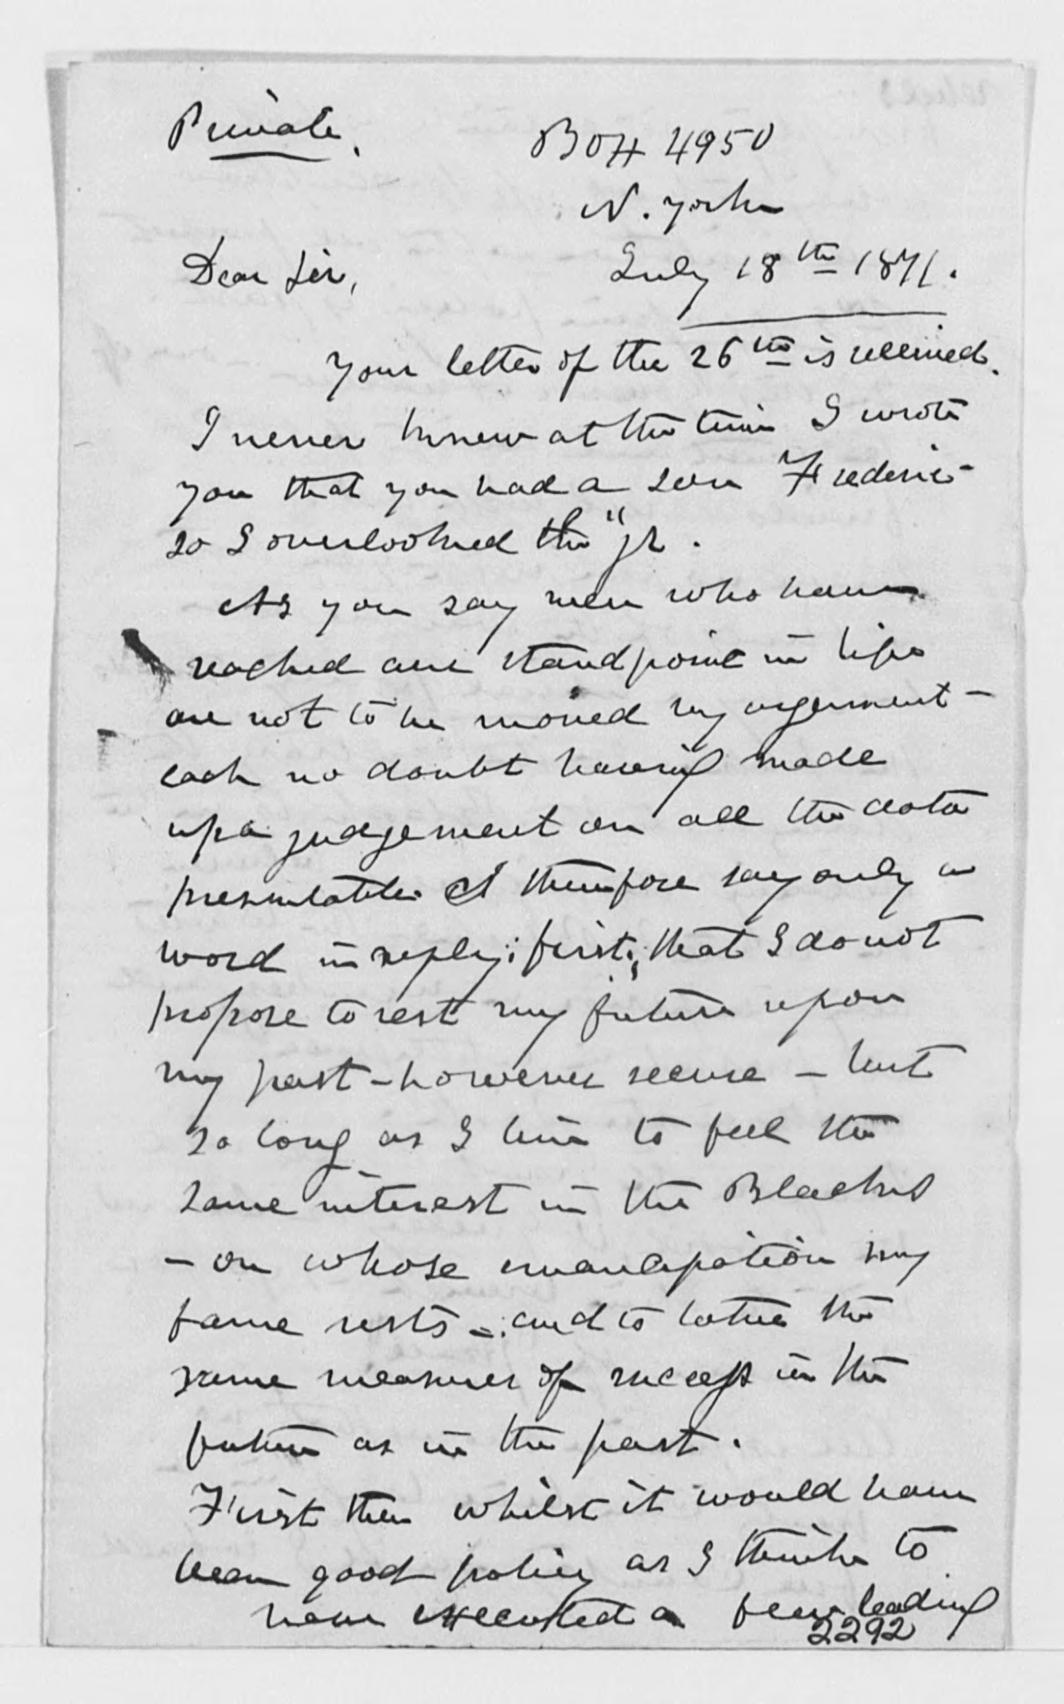 Private.
Box 4950
N. York
July 18th 1871.
Dear Sir,
Your letter of the 26th is received.
I never knew at the time I wrote
you that you had a son Frederic-
so I overlooked the "jr.
As you say men who have
reached our standpoint in life
are not to be moved by argument -
each no doubt having made
up a judgement on all the data
presentable. I therefore say only a
word in reply: first, that I do not
propose to rest my future upon
my past - however secure - but
so long as I live to feel the
same interest in the Blacks
- on whose emancipation my
fame rests - and to the
same measures of success in the
future as in the past.
First then whilst it would have
been good policy as I think to
have executed a few leading
2292